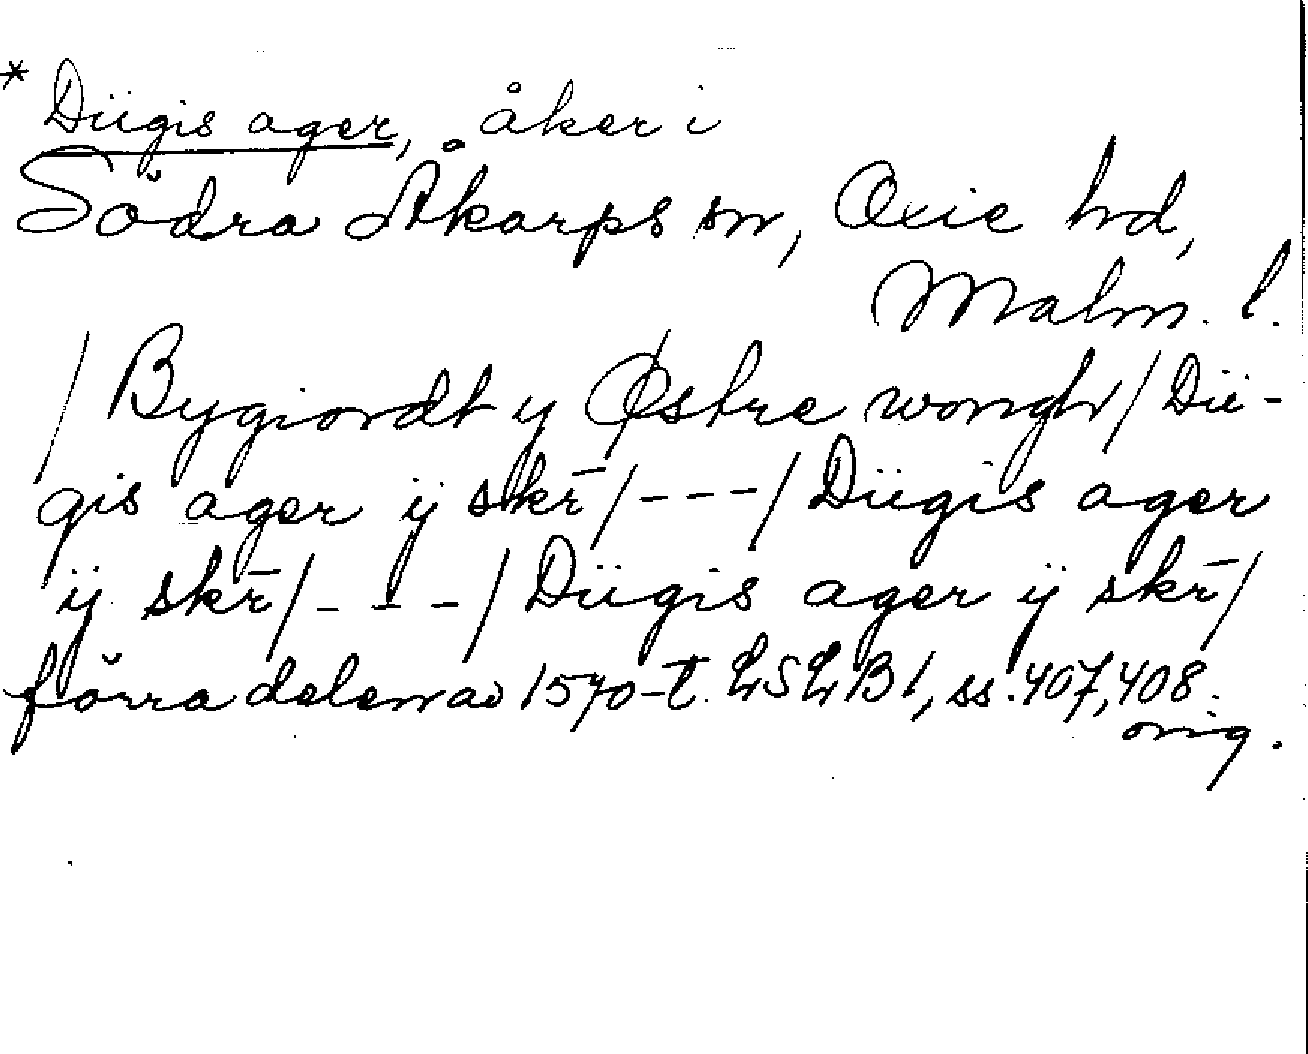 * Dügis ager, åker i
Södra Åkarps sn, Oxie hd,
Malm. l.
/ Bygiordt y Østre wongh / Dü-
gis ager ÿ skr̄ / - - - / Dügis ager
ÿ skr̄ / - - - / Dügis ager ÿ skr̄ /
förra delen av 1570-t. LSLB1, ss. 407, 408.
orig.